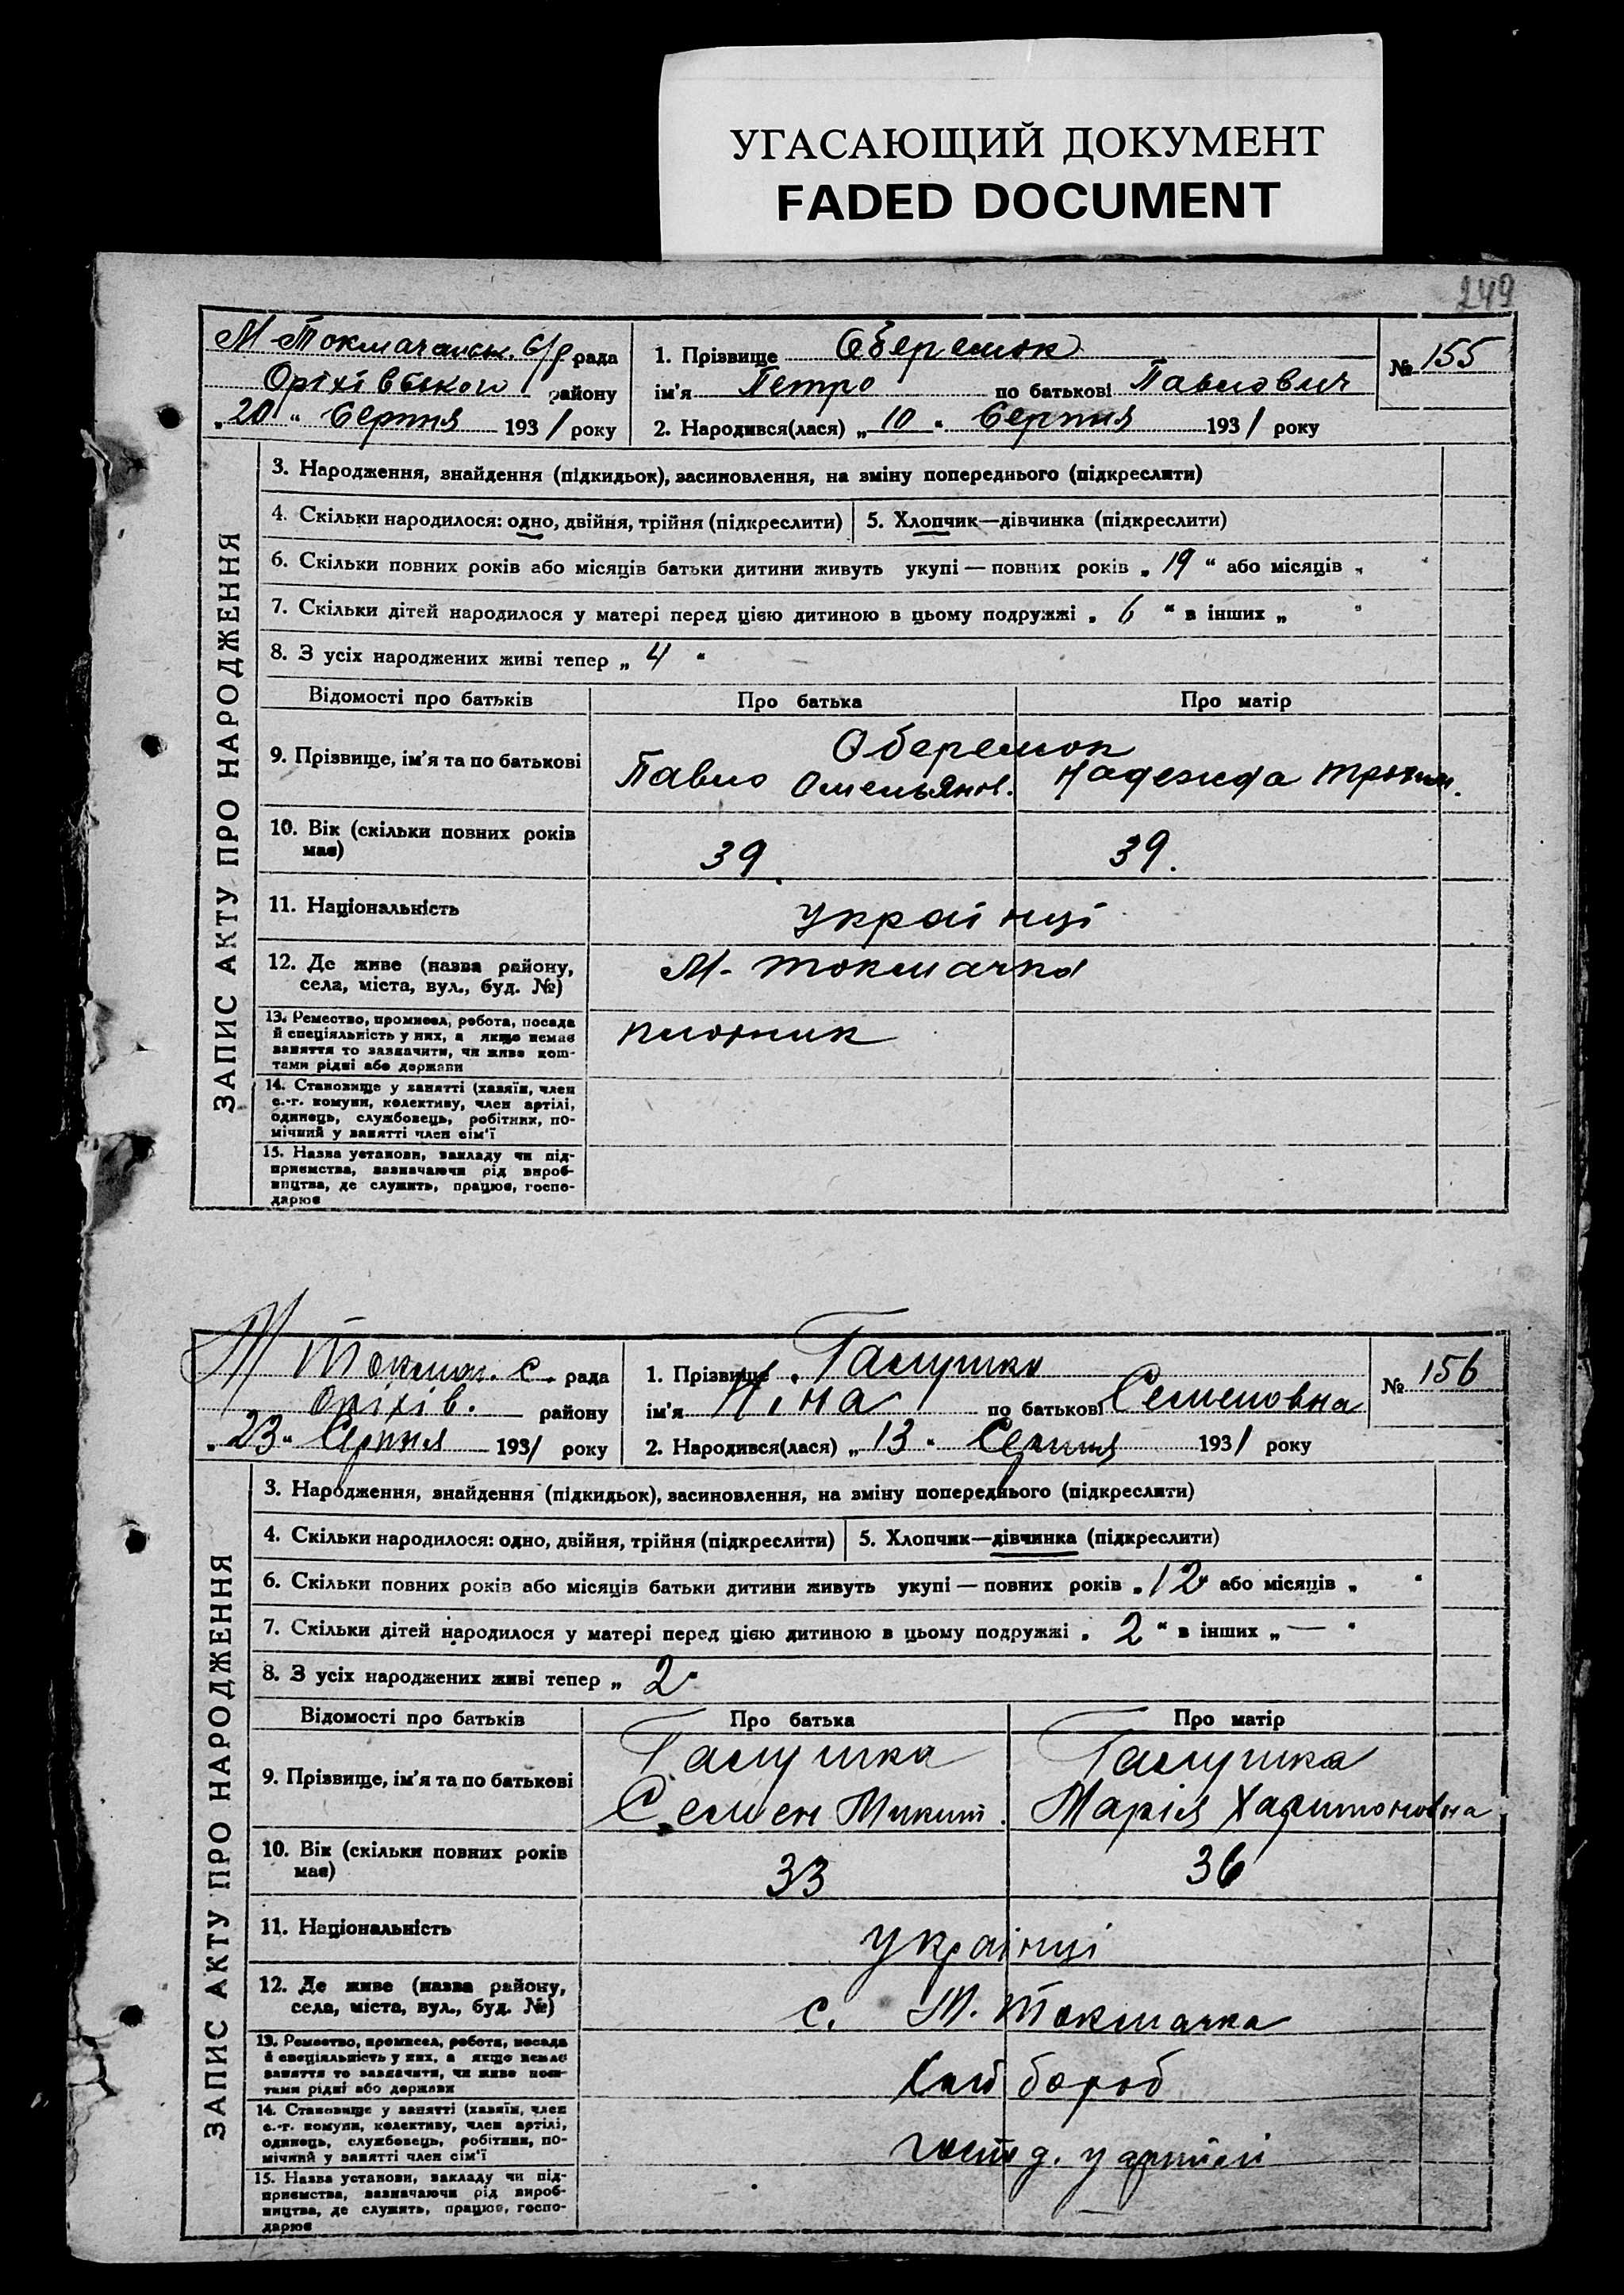 УГАСАЮЩИЙ ДОКУМЕНТ
FADED DOCUMENT
249
М-Токмачанськ. с/р рада
Оріхівського району
„20“ Серпня 1931 року
1. Прізвище Оберемок
ім'я Петро по батькові Павлович
2. Народився(лася) „10“ Серпня 1931 року
№ 155
ЗАПИС АКТУ ПРО НАРОДЖЕННЯ
3. Народження, знайдення (підкидьок), засиновлення, на зміну попереднього (підкреслити)
4. Скільки народилося: одно, двійня, трійня (підкреслити)
5. Хлопчик—дівчинка (підкреслити)
6. Скільки повних років або місяців батьки дитини живуть укупі — повних років „19“ або місяців „ “
7. Скільки дітей народилося у матері перед цією дитиною в цьому подружжі „6“ в інших „ “
8. З усіх народжених живі тепер „4“
Відомості про батьків Про батька Про матір
9. Прізвище, ім'я та по батькові
Оберемок
Павло Омельянов. Надежда Трохим.
10. Вік (скільки повних років
має)
39 39.
11. Національність
українці
12. Де живе (назва району,
села, міста, вул., буд. №)
М-Токмачка
13. Ремество, промисел, робота, посада
й спеціяльність у них, а якщо немає
заняття то зазначити, чи живе кош-
тами рідні або держави
плотник
14. Становище у занятті (хазяїн, член
с.-г. комуни, колективу, член артілі,
одинець, службовець, робітник, по-
мічний у занятті член сім'ї
15. Назва установи, закладу чи під-
приємства, зазначаючи рід вироб-
ництва, де служить, працює, госпо-
дарює
М Токмач. с. рада
Оріхів. району
„23“ Серпня 1931 року
1. Прізвище Галушка
ім'я Ніна по батькові Семеновна
2. Народився(лася) „13“ Серпня 1931 року
№ 156
ЗАПИС АКТУ ПРО НАРОДЖЕННЯ
3. Народження, знайдення (підкидьок), засиновлення, на зміну попереднього (підкреслити)
4. Скільки народилося: одно, двійня, трійня (підкреслити)
5. Хлопчик—дівчинка (підкреслити)
6. Скільки повних років або місяців батьки дитини живуть укупі — повних років „12“ або місяців „ “
7. Скільки дітей народилося у матері перед цією дитиною в цьому подружжі „2“ в інших „—“
8. З усіх народжених живі тепер „2“
Відомості про батьків Про батька Про матір
9. Прізвище, ім'я та по батькові
Галушка Галушка
Семен Микит. Марія Харитоновна
10. Вік (скільки повних років
має)
33 36
11. Національність
українці
12. Де живе (назва району,
села, міста, вул., буд. №)
с. М. Токмачка
13. Ремество, промисел, робота, посада
й спеціяльність у них, а якщо немає
заняття то зазначити, чи живе кош-
тами рідні або держави
хліб бороб
14. Становище у занятті (хазяїн, член
с.-г. комуни, колективу, член артілі,
одинець, службовець, робітник, по-
мічний у занятті член сім'ї
госпд. у артілі
15. Назва установи, закладу чи під-
приємства, зазначаючи рід вироб-
ництва, де служить, працює, госпо-
дарює